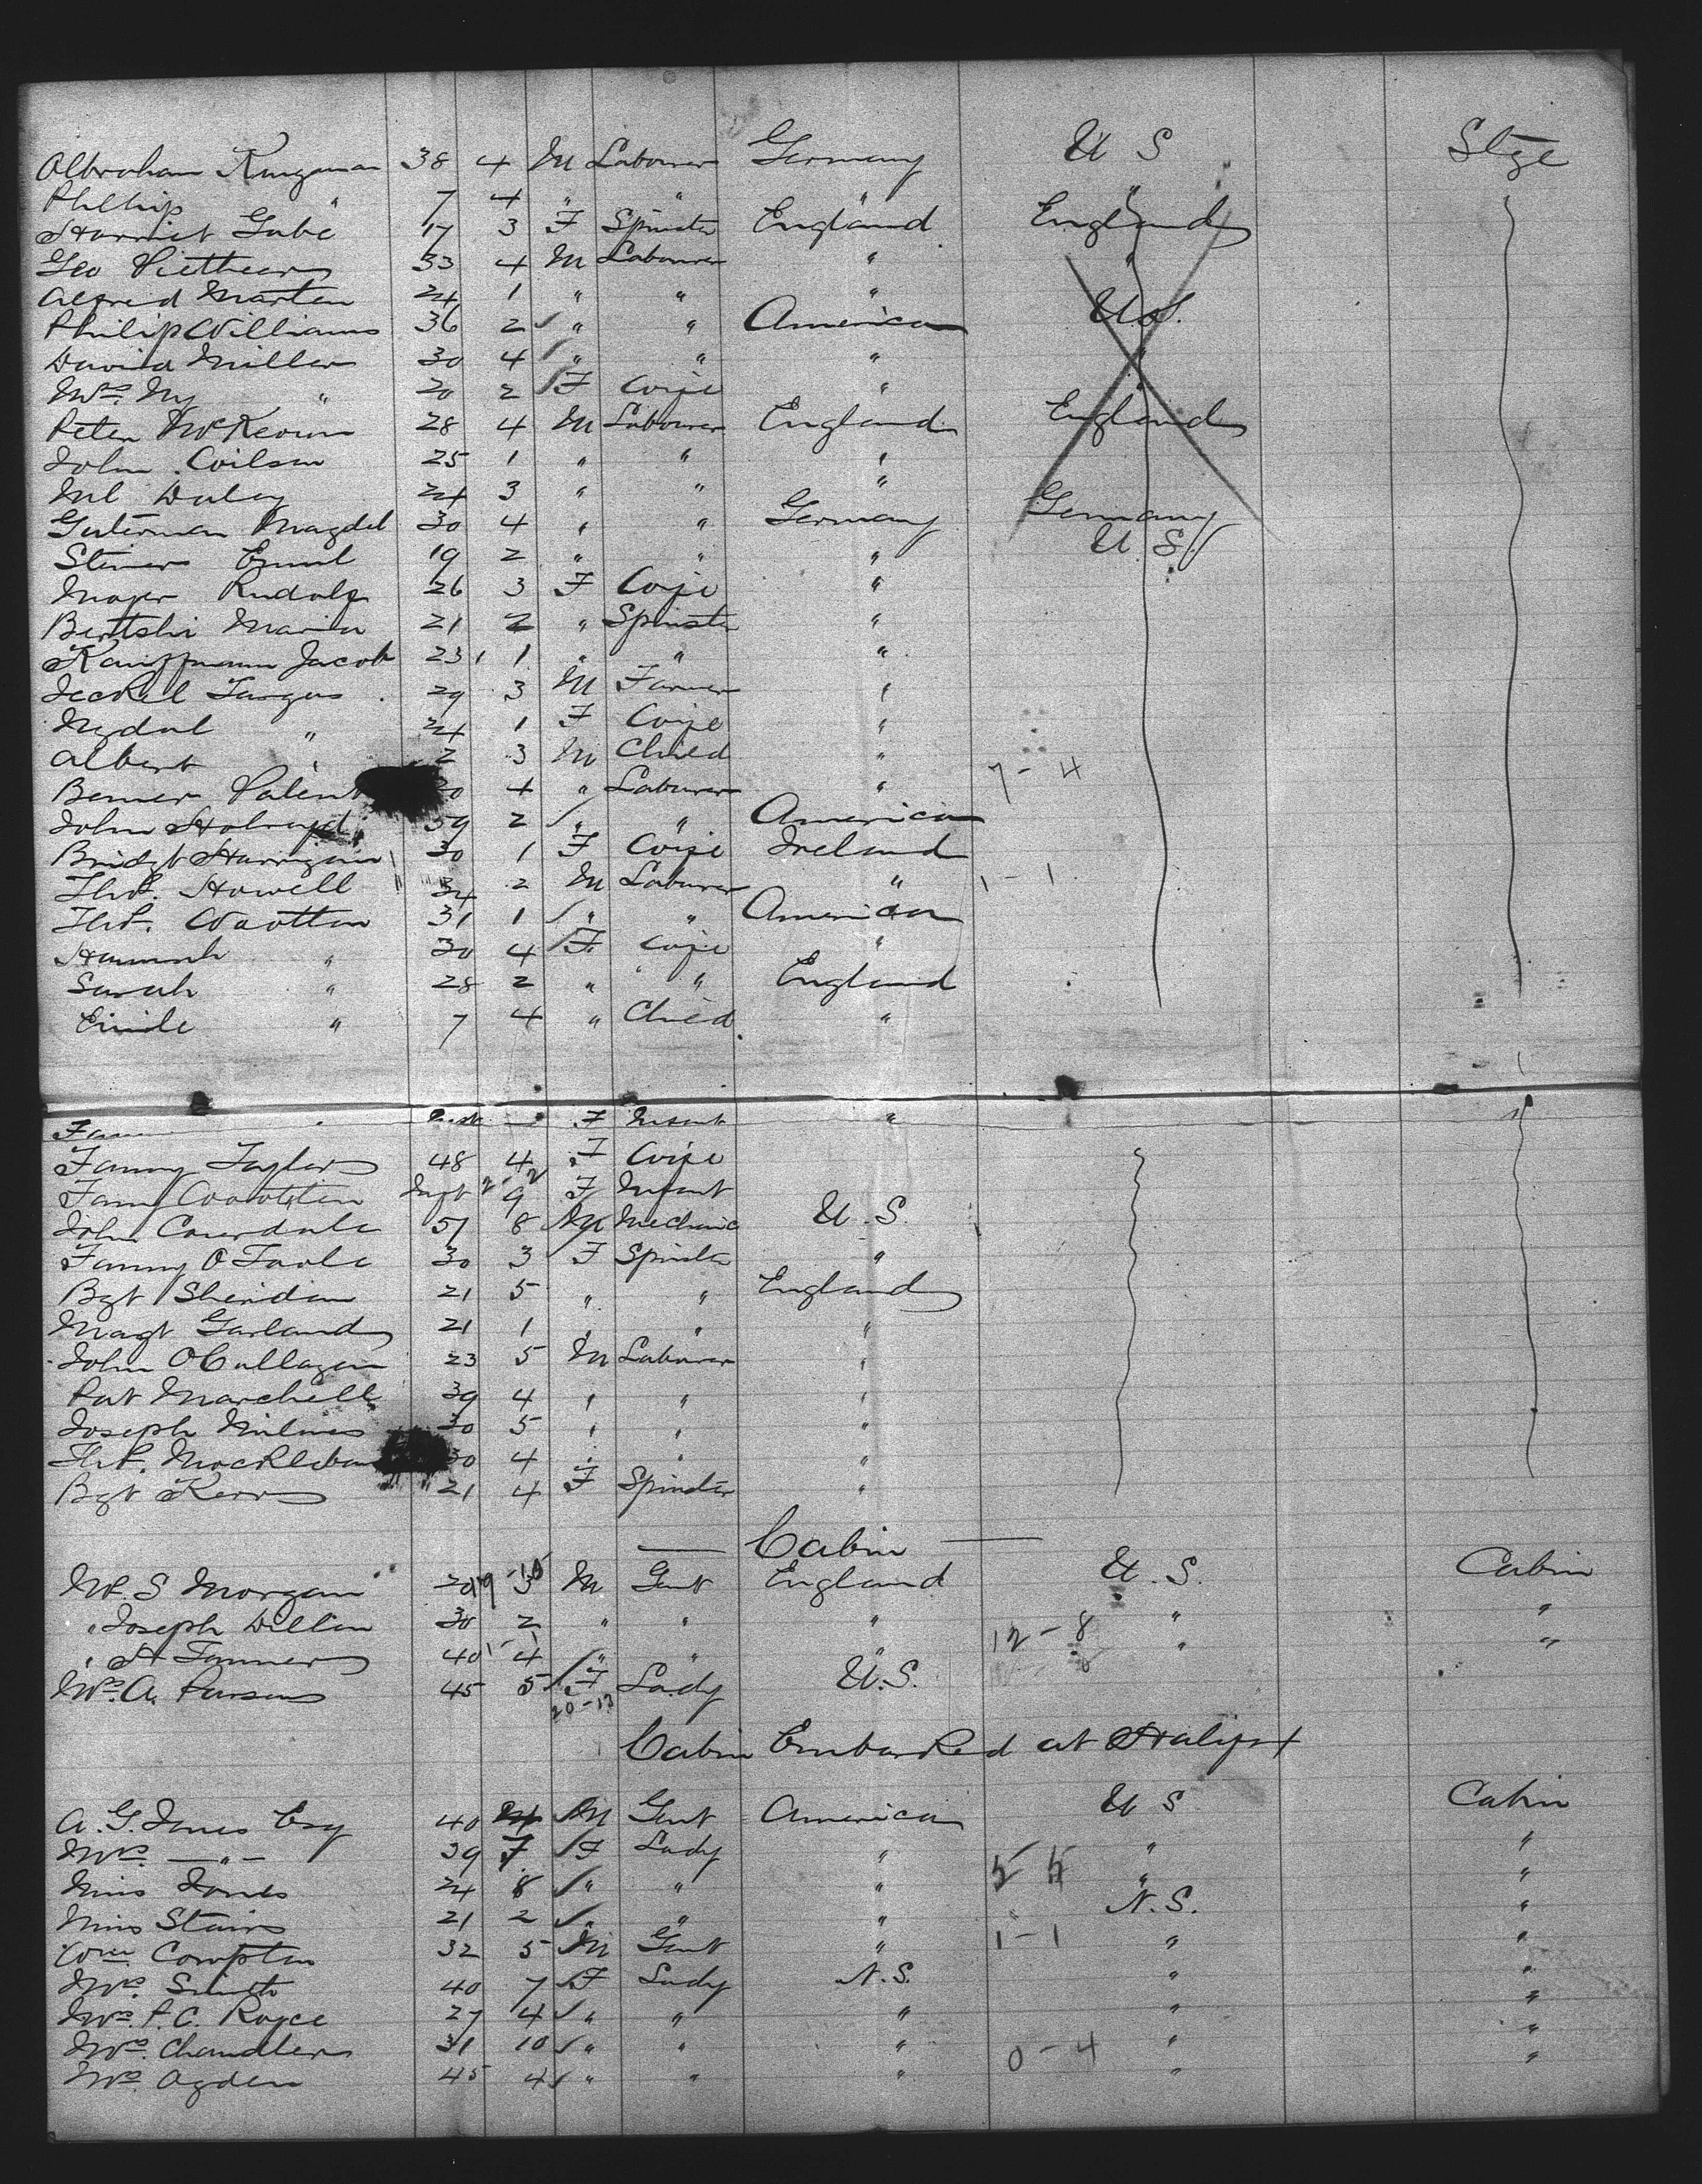 Abraham Kingman 38 4 M Labourer Germany U S Stge
Phillip " 7 4 " " " "
Harriet Gabe 17 3 F Spinster England England
Geo 33 4 M Labourer " "
Alfred Marten 24 1 " " "
Philip Williams 36 2 " " American U.S.
David Miller 30 4 " " " "
Mrs. My " 20 2 F Wife " "
Peter McKeown 28 4 M Labourer England England
John Wilson 25 1 " " "
Ml Daley 24 3 " " "
Guterman Magdel 30 4 " " Germany Germany
Steiner Emil 19 2 " " " U.S.
Mayer Rudolf 26 3 F Wife "
Bertshi Maria 21 2 " Spinster "
Kauffmann Jacob 23 1 " " "
Jeckel Jurgus 29 3 M Farmer "
Mgdal " 24 1 F Wife "
Albert " 2 3 M Child "
7 - 4
Benner Valent 30 4 " Labourer "
John Holroyd 59 2 " " American
Bridgt Harrigan 30 1 F Wife Ireland
Thos. Howell 34 2 M Labourer " 1 - 1
Thos. Wootton 31 1 " " American
Hannah " 30 4 F Wife "
Sarah " 28 2 " " England
Emile " 7 4 " Child "
F Infant "
Fanny Taylor 48 4 F Wife
Fany Wootten Inft 9 F Infant
John 57 8 M Mechanic U.S.
Fanny O Toole 30 3 F Spinster "
Bgt Sheridan 21 5 " " England
Magt Garland 21 1 " " "
John OCallagan 23 5 M Labourer "
Pat Marchell 39 4 " " "
Joseph Milnes 30 5 " " "
Thos. 30 4 " " "
Bgt Kerr 21 4 F Spinster "
— Cabin —
Mr. S Morgan 3 M Gent England U.S. Cabin
" Joseph Dillon 30 2 " " " " "
12 - 8
" H Tanner 40 4 " " " " "
Mrs. A. Parsons 45 5 F Lady U.S.
20 - 13
Cabin Embarked at Halifax
A. G. Jones Esq 40 M Gent America U S Cabin
Mrs. —"— 39 7 F Lady " " "
5 5
Miss Jones 24 8 " " " " "
Miss Stairs 21 2 " " " N.S. "
Wm Compton 32 5 M Gent " 1 - 1 " "
Mrs. Smith 40 7 F Lady N.S. " "
Mrs. P. C. Royce 27 4 " " " " "
Mrs. Chandler 31 10 " " " " "
0 - 4
Mrs. Ogden 45 4 " " " " "